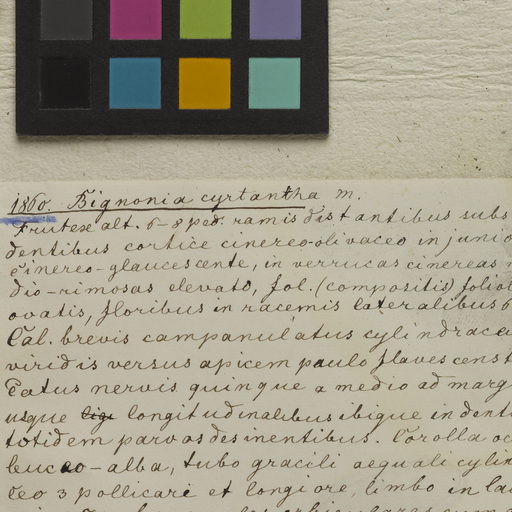 1860. Bignonia cyrtantha m.
Frutex alt. 6-8 ped. ramis distantibus subs
dentibus cortice cinereo-olivaceo in junio
cinereo-glaucescente, in verrucas cinereas
dio-rimosas elevato, fol. (compositis) foliol
ovatis, floribus in racemis lateralibus 6
Cal. brevis campanulatus cylindrace
viridis versus apicem paulo flavescens t
catus nervis quinque a medio ad marg
usque longitudinalibus ibique in denti
totidem parvos desinentibus. Corolla oc
leuco-alba, tubo gracili aequali cylin
ceo 3 pollicari et longiore, limbo in la